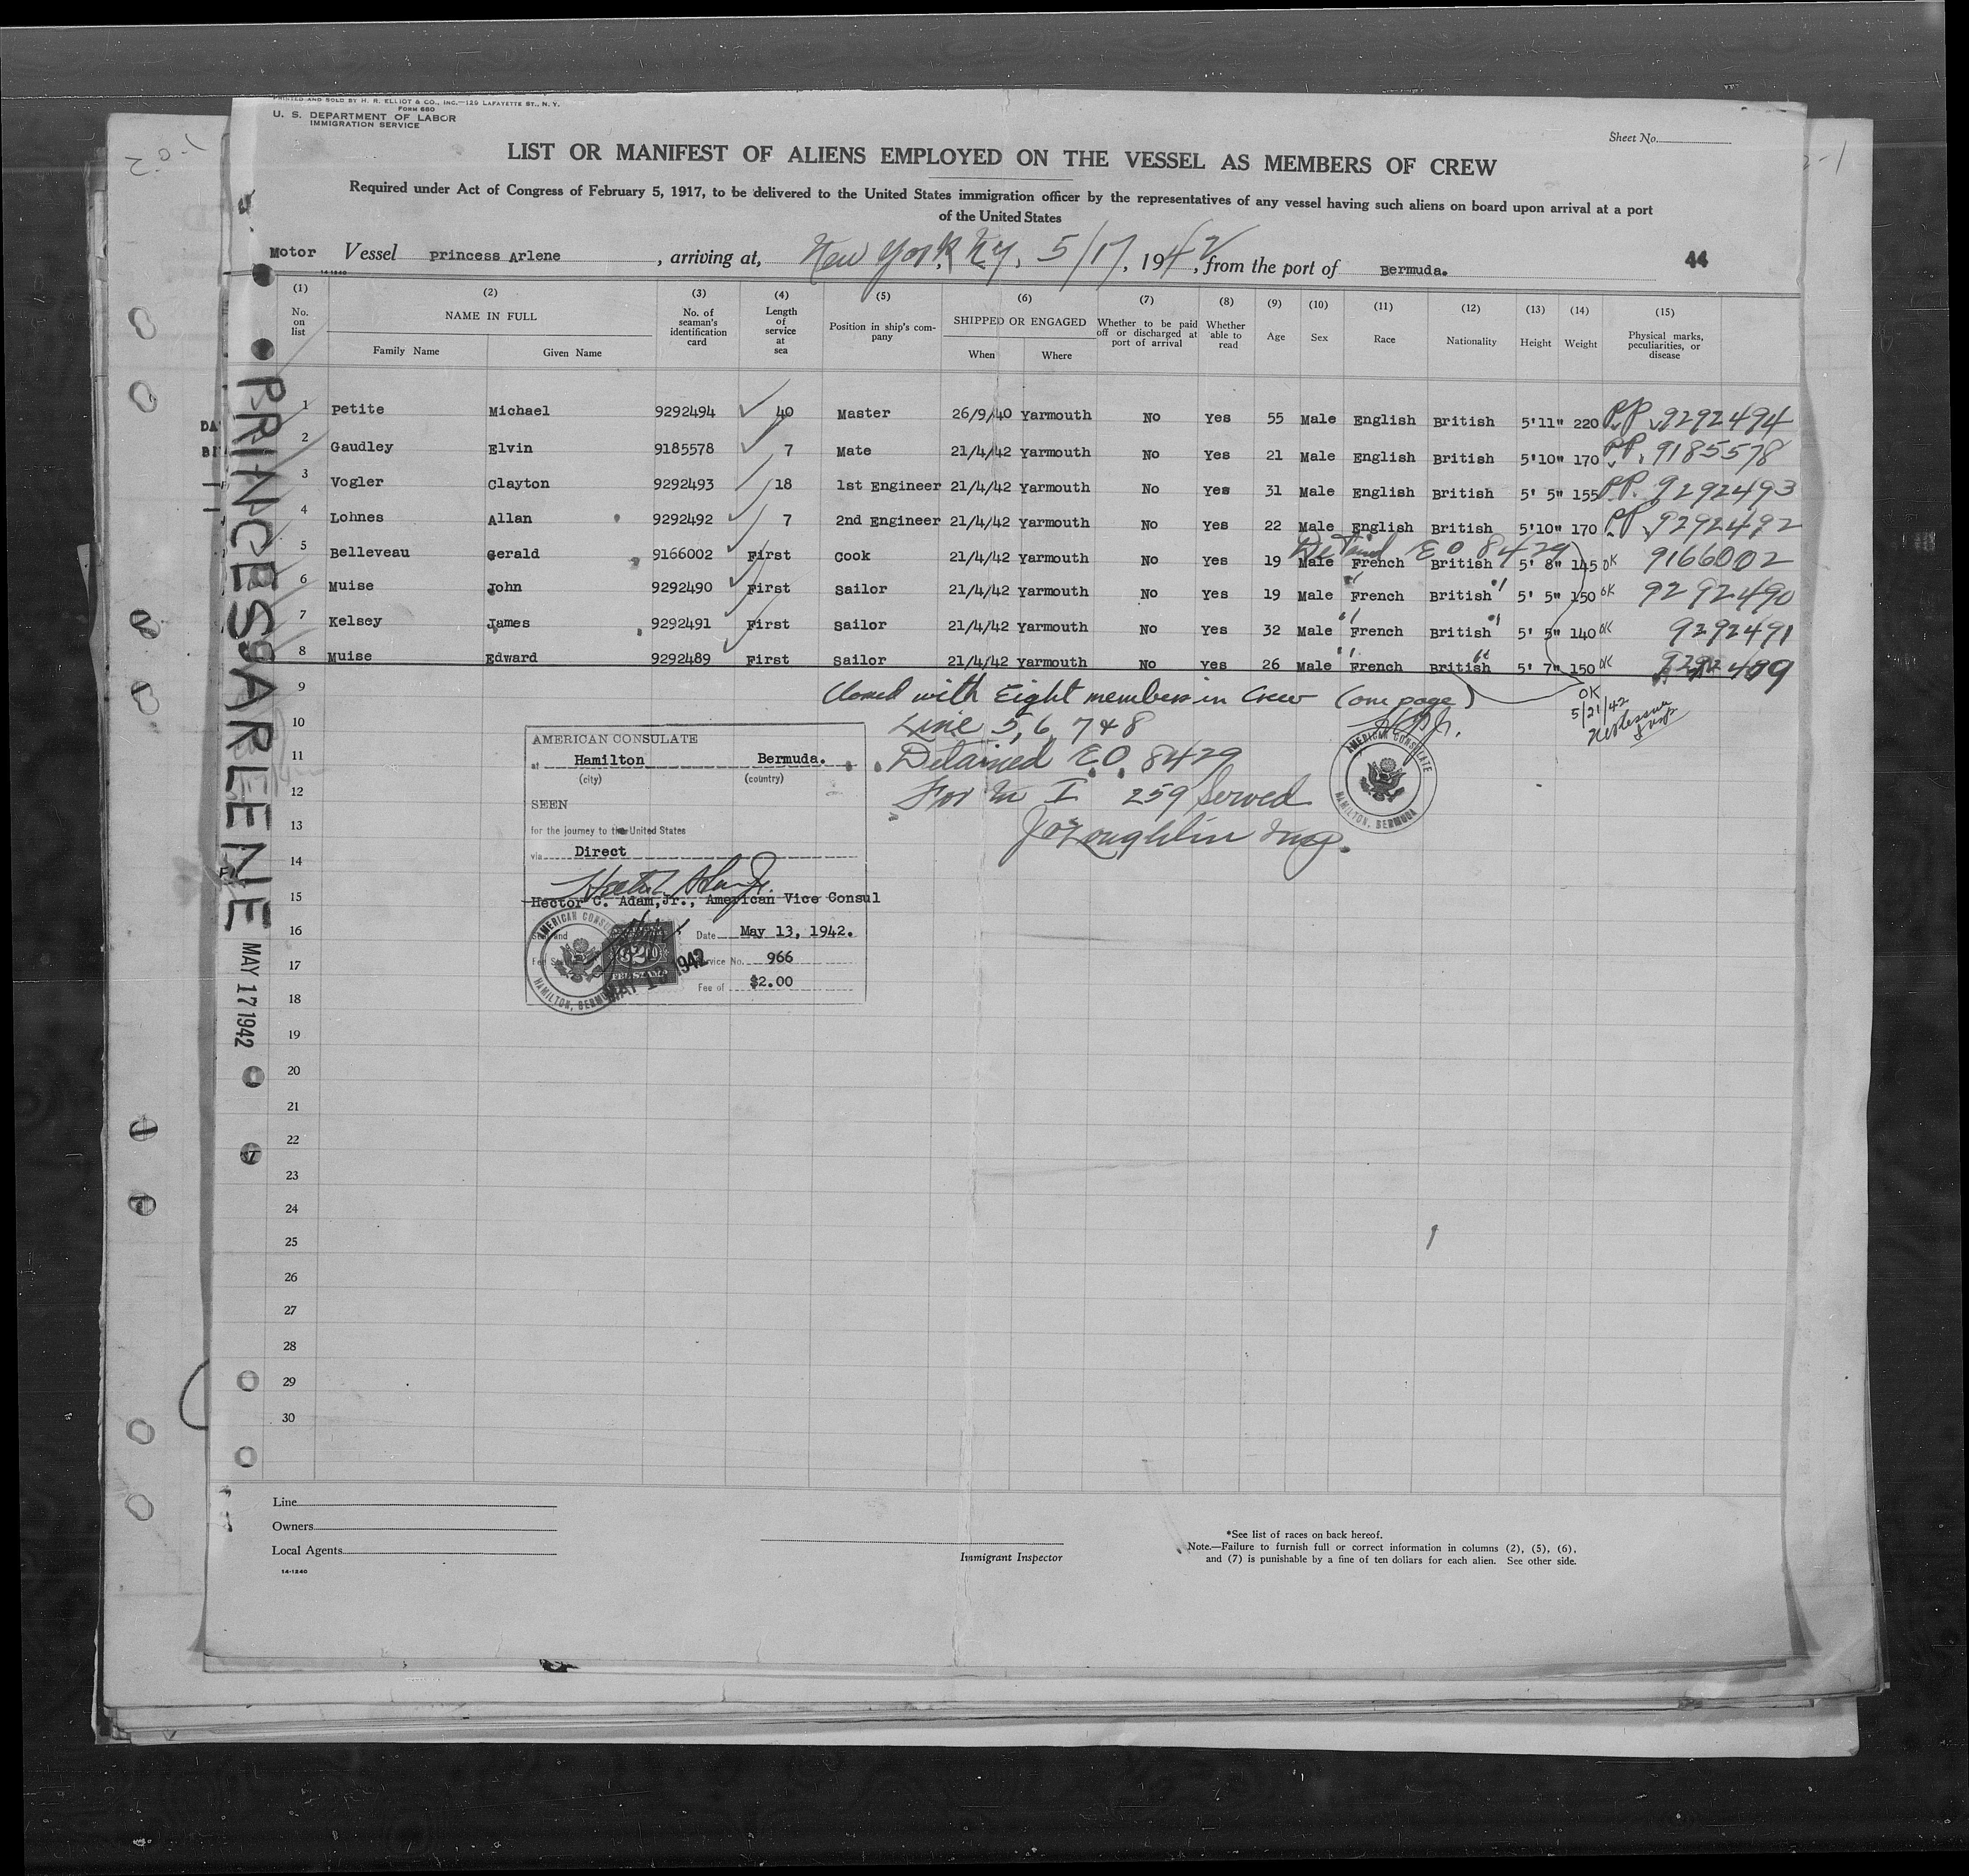 PRINTED AND SOLD BY H. R. ELLIOT & CO., INC.—129 LAFAYETTE ST., N. Y.
FORM 680
U. S. DEPARTMENT OF LABOR
IMMIGRATION SERVICE
Sheet No.
LIST OR MANIFEST OF ALIENS EMPLOYED ON THE VESSEL AS MEMBERS OF CREW
Required under Act of Congress of February 5, 1917, to be delivered to the United States immigration officer by the representatives of any vessel having such aliens on board upon arrival at a port
of the United States
Motor Vessel Princess Arlene, arriving at, New York, N.Y. 5/17, 1942, from the port of Bermuda. 44
14-1240
(1) (2) (3) (4) (5) (6) (7) (8) (9) (10) (11) (12) (13) (14) (15)
No. on list NAME IN FULL Family Name Given Name No. of seaman's identification card Length of service at sea Position in ship's company SHIPPED OR ENGAGED When Where Whether to be paid off or discharged at port of arrival Whether able to read Age Sex Race Nationality Height Weight Physical marks, peculiarities, or disease
1 Petite Michael 9292494 40 Master 26/9/40 Yarmouth No Yes 55 Male English British 5'11" 220 P.P. 9292494
2 Gaudley Elvin 9185578 7 Mate 21/4/42 Yarmouth No Yes 21 Male English British 5'10" 170 P.P. 9185578
3 Vogler Clayton 9292493 18 1st Engineer 21/4/42 Yarmouth No Yes 31 Male English British 5' 5" 155 P.P. 9292493
4 Lohnes Allan 9292492 7 2nd Engineer 21/4/42 Yarmouth No Yes 22 Male English British 5'10" 170 P.P. 9292492
Detained EO 8429
5 Belleveau Gerald 9166002 First Cook 21/4/42 Yarmouth No Yes 19 Male French British 5' 8" 145 OK 9166002
6 Muise John 9292490 First Sailor 21/4/42 Yarmouth No Yes 19 Male " French British " 5' 5" 150 OK 9292490
7 Kelsey James 9292491 First Sailor 21/4/42 Yarmouth No Yes 32 Male " French British " 5' 5" 140 OK 9292491
8 Muise Edward 9292489 First Sailor 21/4/42 Yarmouth No Yes 26 Male " French British " 5' 7" 150 OK 9292489
9 Closed with Eight members in Crew (one page)
OK
5/21/42
10 Line 5, 6, 7 & 8
11 Detained E.O. 8429
12 Form I 259 Served
13 J O'Loughlin Insp.
14
15
16
17
18
19
20
21
22
23
24
25
26
27
28
29
30
AMERICAN CONSULATE
at Hamilton Bermuda.
(city) (country)
SEEN
for the journey to the United States
via Direct
Hector C. Adam, Jr., American Vice Consul
Date May 13, 1942.
Service No. 966
Fee of $2.00
AMERICAN CONSULATE
HAMILTON, BERMUDA
FEE STAMP
AMERICAN CONSULATE
HAMILTON, BERMUDA
PRINCESS ARLENE
MAY 17 1942
Line
Owners
Local Agents
14-1240
Immigrant Inspector
*See list of races on back hereof.
Note.—Failure to furnish full or correct information in columns (2), (5), (6),
and (7) is punishable by a fine of ten dollars for each alien. See other side.